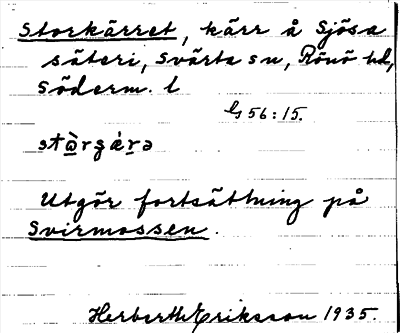 Storkärret, kärr å Sjösa
säteri, Svärta sn, Rönö hd,
Söderm. l
Gs 56:15.
Utgör fortsättning på
Svirmossen.
Herberth Eriksson 1935.